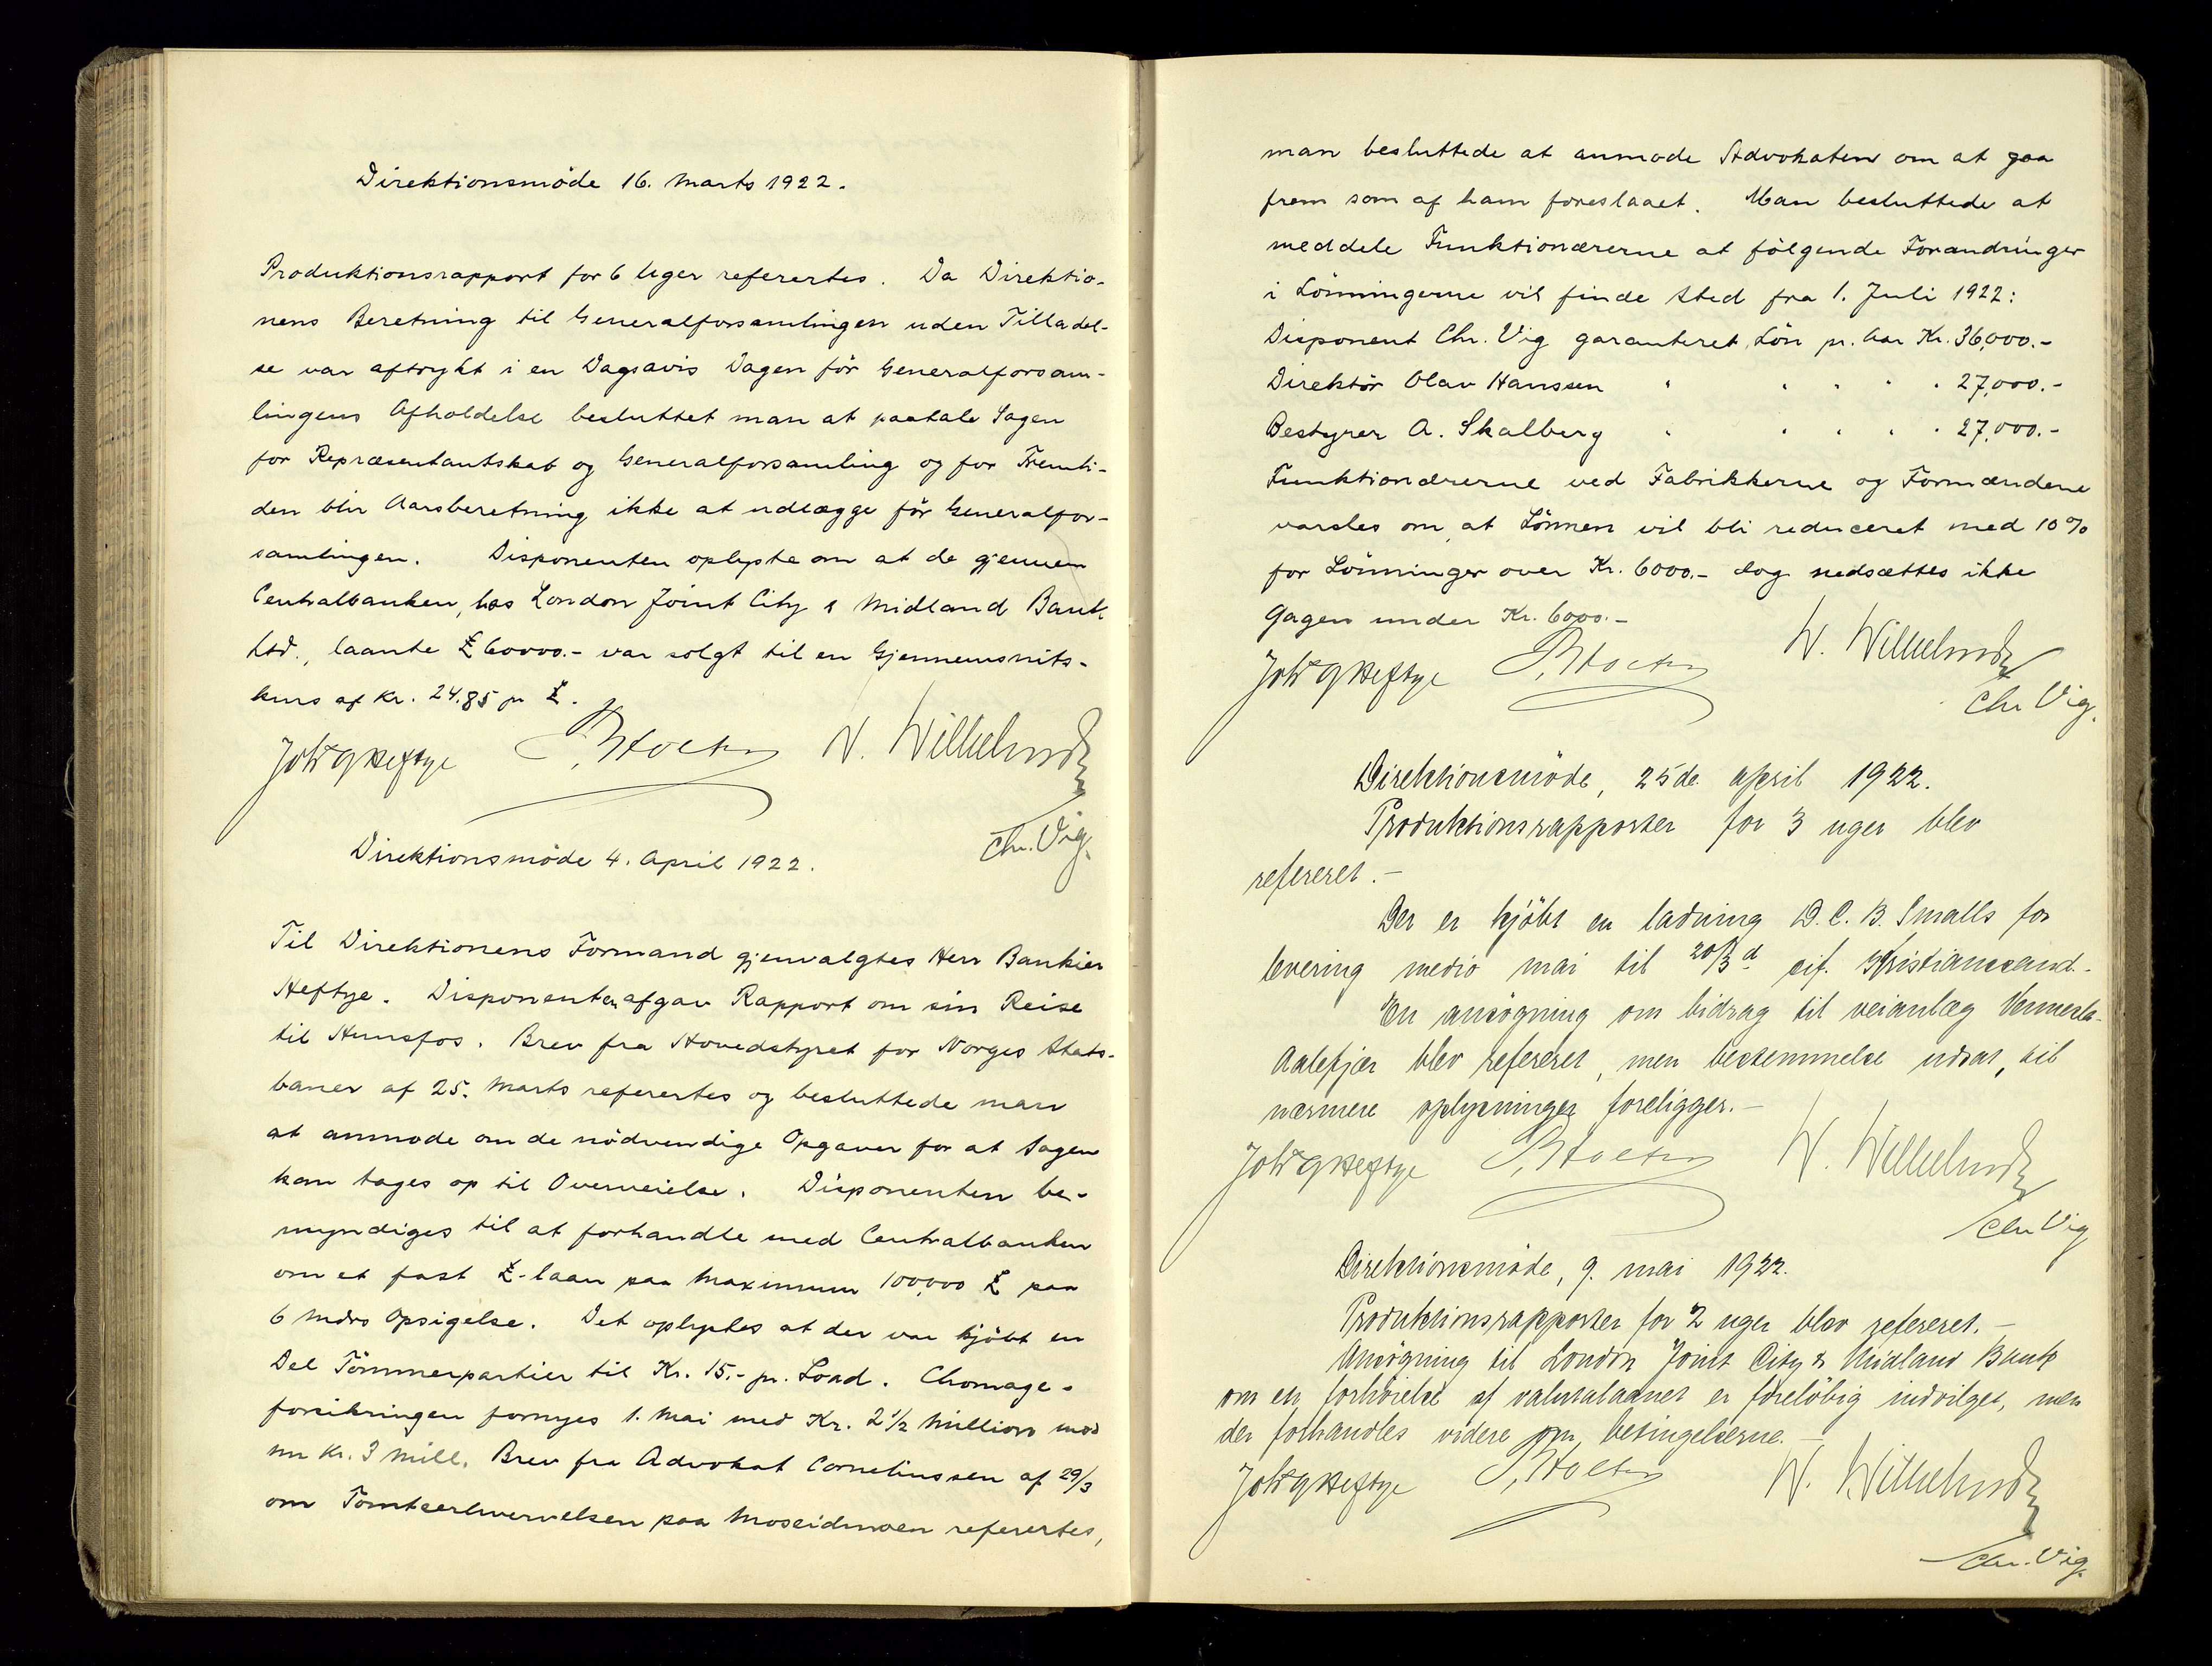 Direktionsmöde 16. Marts 1922.
Produktionsrapport for 6 Uger referertes. Da Direktio-
nens Beretning til Generalforsamlingen uden Tilladel-
se var aftrykt i en Dagsavis Dagen för Generalforsam-
lingens Afholdelse besluttet man at paatale Sagen
for Repræsentantskab og Generalforsamling og for Fremti-
den blir Aarsberetning ikke at udlægge för Generalfor-
samlingen. Disponenten oplyste om at de gjennem
Centralbanken, hos London Joint City & Midland Bank
Ltd., laante £ 60000.- var solgt til en Gjennemsnits-
kurs af Kr. 24.85 pr £.
Joh Heftye P. Stolten W. Wilhelmsen
Chr. Vig.
Direktionsmöde 4. April 1922.
Til Direktionens Formand gjenvalgtes Herr Bankier
Heftye. Disponenten afgav Rapport om sin Reise
til Hunsfos. Brev fra Hovedstyret for Norges Stats-
baner af 25. Marts referertes og besluttede man
at anmode om de nödvendige Opgaver for at Sagen
kan tages op til Overveielse. Disponenten be-
myndiges til at forhandle med Centralbanken
om et fast £-laan paa Maximum 100,000 £ paa
6 Mdrs Opsigelse. Det oplystes at der var kjöbt en
Del Tömmerpartier til Kr. 15.- pr. Load. Chomage-
forsikringen fornyes 1. Mai med Kr. 2 1/2 Million mod
nu Kr. 3 Mill. Brev fra Advokat Corneliussen af 29/3
om Tomteerhvervelsen paa Moseidmoen referertes,
man besluttede at anmode Advokaten om at gaa
frem som af ham foreslaaet. Man besluttede at
meddele Funktionærerne at fölgende Forandringer
i Lönningerne vil finde Sted fra 1. Juli 1922:
Disponent Chr. Vig garanteret Lön pr. Aar Kr. 36,000.-
Direktör Olav Hanssen " " " " " 27,000.-
Bestyrer A. Skalberg " " " " " 27,000.-
Funktionærerne ved Fabrikkerne og Formændene
varsles om at Lönnen vil bli reduceret med 10%
for Lönninger over Kr. 6000.- dog nedsættes ikke
Gagen under Kr. 6000.-
Joh Heftye P. Stolten W. Wilhelmsen
Chr Vig.
Direktionsmöde, 25de april 1922.
Produktionsrapporter for 3 uger blev
refereret.-
Der er kjöbt en ladning D.C.B. Smalls for
levering medio mai til 20/3 d cif. Kristianssand.-
En ansögning om bidrag til veianlæg Vennesla-
Aalefjær blev refereret, men bestemmelse udsat, til
nærmere oplysninger foreligger.-
Joh Heftye P. Stolten W. Wilhelmsen
Chr Vig
Direktionsmöde, 9. mai 1922.
Produktionsrapporter for 2 uger blev refereret.-
Ansögning til London Joint City & Midland Bank
om en forhöielse af valutalaanet er foreløbig indvilget, men
der forhandles videre om betingelserne.-
Joh Heftye P. Stolten W. Wilhelmsen
Chr. Vig.